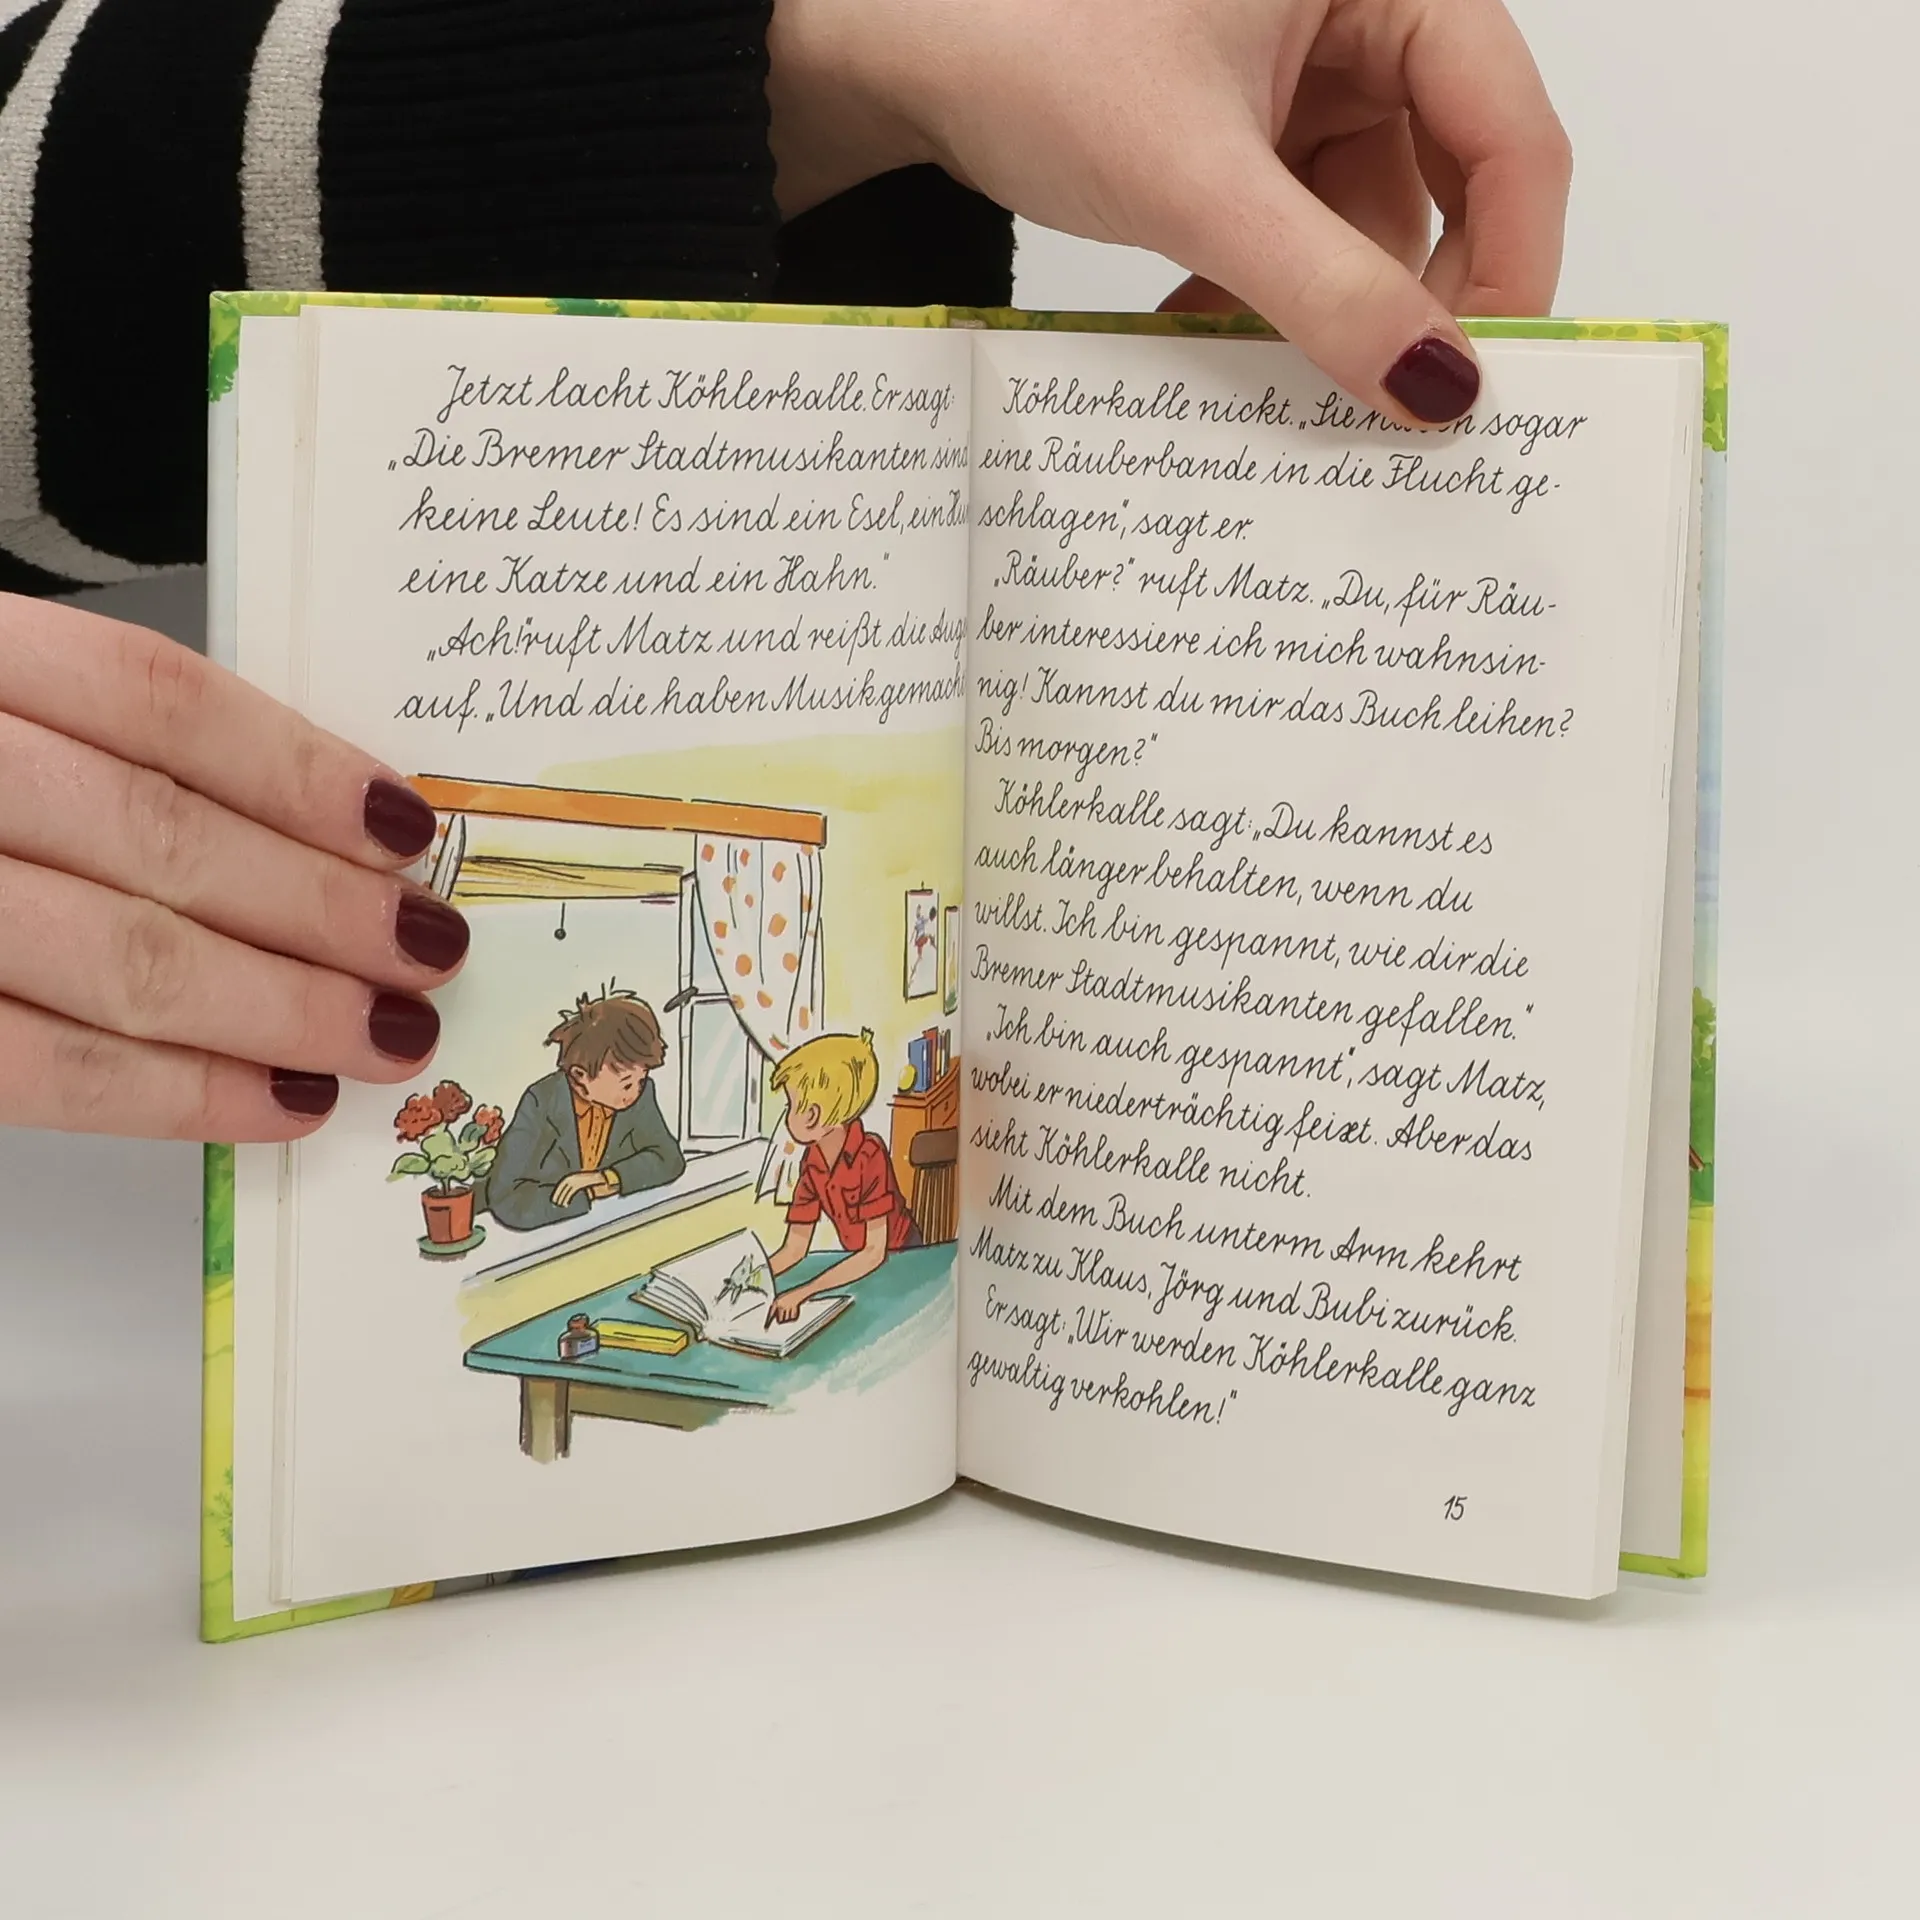 Jetzt lacht Köhlerkalle. Er sagt:
„Die Bremer Stadtmusikanten sind
keine Leute! Es sind ein Esel, ein
eine Katze und ein Hahn."
„Ach!" ruft Matz und reißt die
auf. „Und die haben Musik gemacht
Köhlerkalle nickt. „Sie sogar
eine Räuberbande in die Flucht ge-
schlagen", sagt er.
„Räuber?" ruft Matz. „Du, für Räu-
ber interessiere ich mich wahnsin-
nig! Kannst du mir das Buch leihen?
Bis morgen?"
Köhlerkalle sagt: „Du kannst es
auch länger behalten, wenn du
willst. Ich bin gespannt, wie dir die
Bremer Stadtmusikanten gefallen."
„Ich bin auch gespannt", sagt Matz,
wobei er niederträchtig feixt. Aber das
sieht Köhlerkalle nicht.
Mit dem Buch unterm Arm kehrt
Matz zu Klaus, Jörg und Bubi zurück.
Er sagt: „Wir werden Köhlerkalle ganz
gewaltig verkohlen!"
15